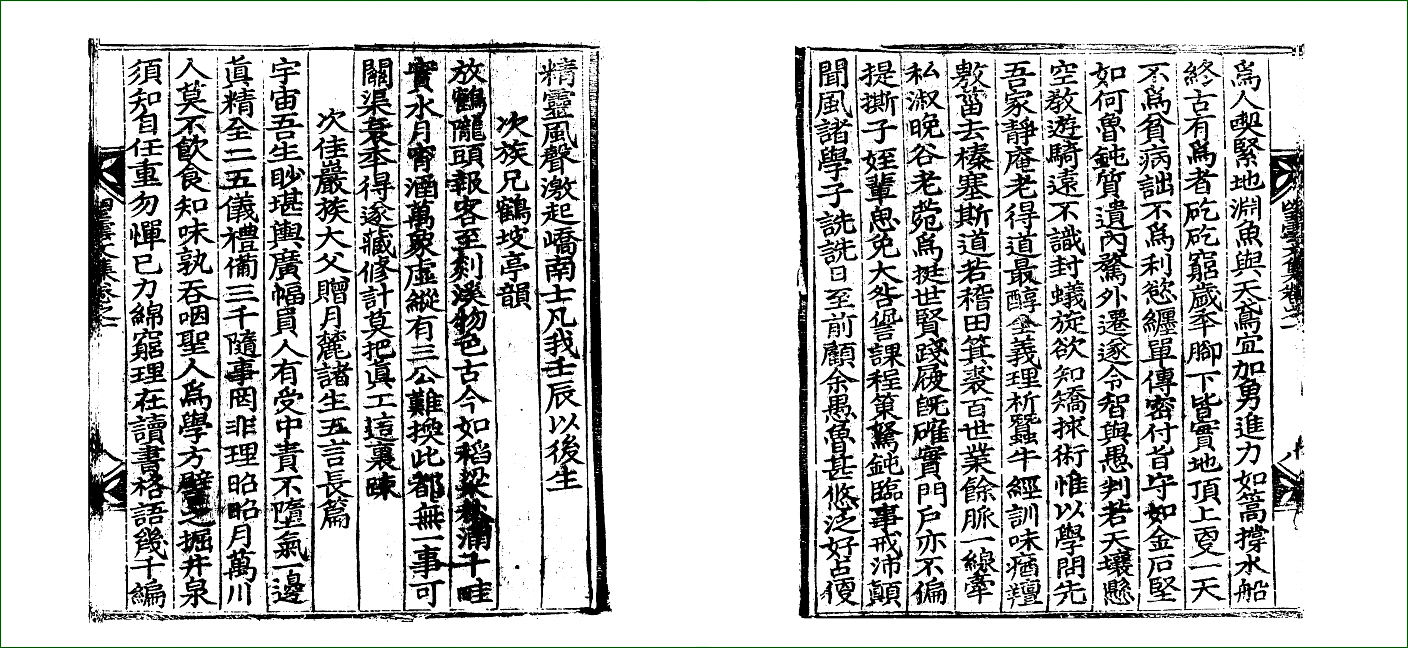 精靈風聲激起嶠南士凡我壬辰以後生
次族兄鶴坡亭韻
放鶴隴頭報客至剡溪物色古今如稻粱秋滿千畦
實水月宵涵萬象虛縱有三公難換此都無一事可
關渠衰年得遂藏修計莫把眞工這裏疎
次佳巖族大父贈月麓諸生五言長篇
宇宙吾生眇堪輿廣幅員人有受中貴不墮氣一邊
眞精全二五儀禮備三千隨事罔非理昭昭月萬川
人莫不飮食知味孰吞咽聖人爲學方譬之掘井泉
須知自任重勿憚已力綿窮理在讀書格語幾千編
爲人喫緊地淵魚與天鳶宜加勇進力如篙撐水船
終古有爲者矻矻窮歲年脚下皆實地頂上更一天
不爲貧病詘不爲利慾纏單傳密付旨守如金石堅
如何魯鈍質遺內騖外遷遂令智與愚判若天壤懸
空教遊騎遠不識封蟻旋欲知矯捄術惟以學問先
吾家靜庵老得道最醇全義理析蠶牛經訓味痡羶
敷菑去榛塞斯道若稽田箕裘百世業餘脈一線牽
私淑晩谷老蔸爲挺世賢踐履旣確實門戶亦不偏
提撕子姪輩思免大咎諐課程策駑鈍臨事戒沛顚
聞風諸學子詵詵日至前顧余愚魯甚悠泛好占便